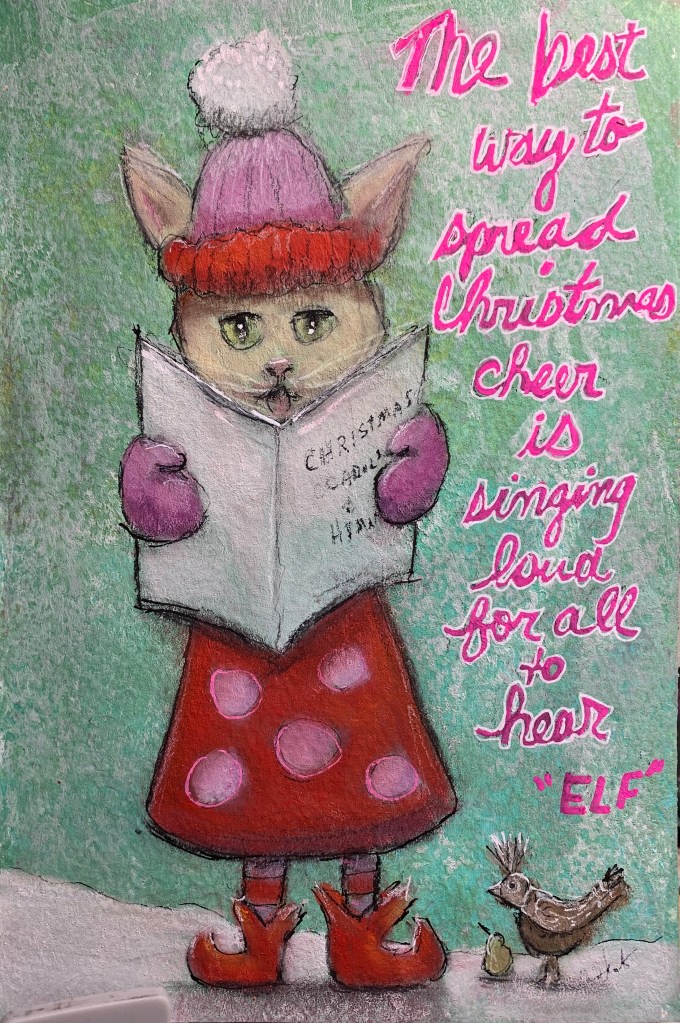 The best
way to
spread
Christmas
cheer
is
singing
loud
for all
to
hear
"ELF"
CHRISTMAS
CAROLS
&